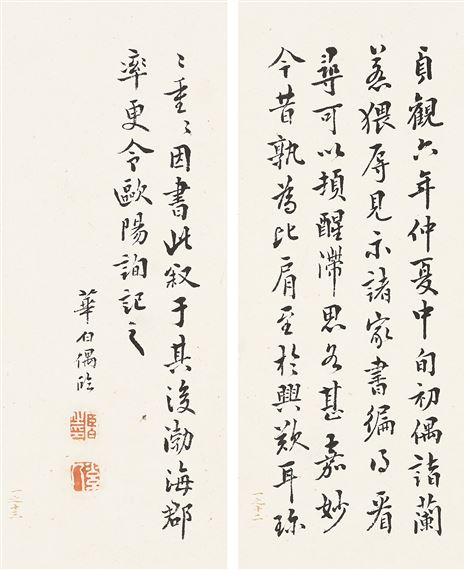 貞觀六年仲夏中旬初偶詣蘭
惹猥辱見示諸家書編得看
尋可以頓醒滯思甚嘉妙
今昔孰為比肩至於興歎耳珎
〻重〻因書此叙于其後渤海郡
率更令歐陽詢記之
華伯偶臨
一之十二
一之十三